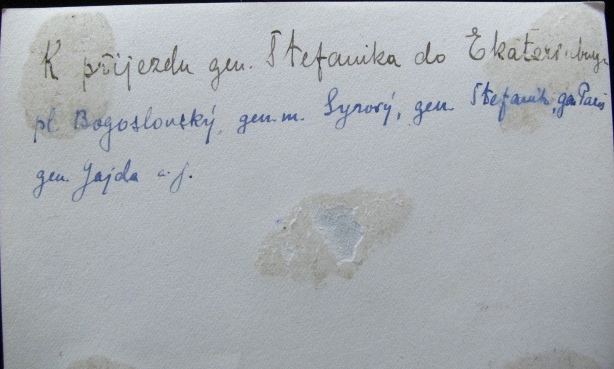 K příjezdu gen. Štefanika do Ekaterinburgu
pl. Bogoslovský, gen. m. Syrový, gen. Štefanik, gen Paris
gen. Gajda a j.